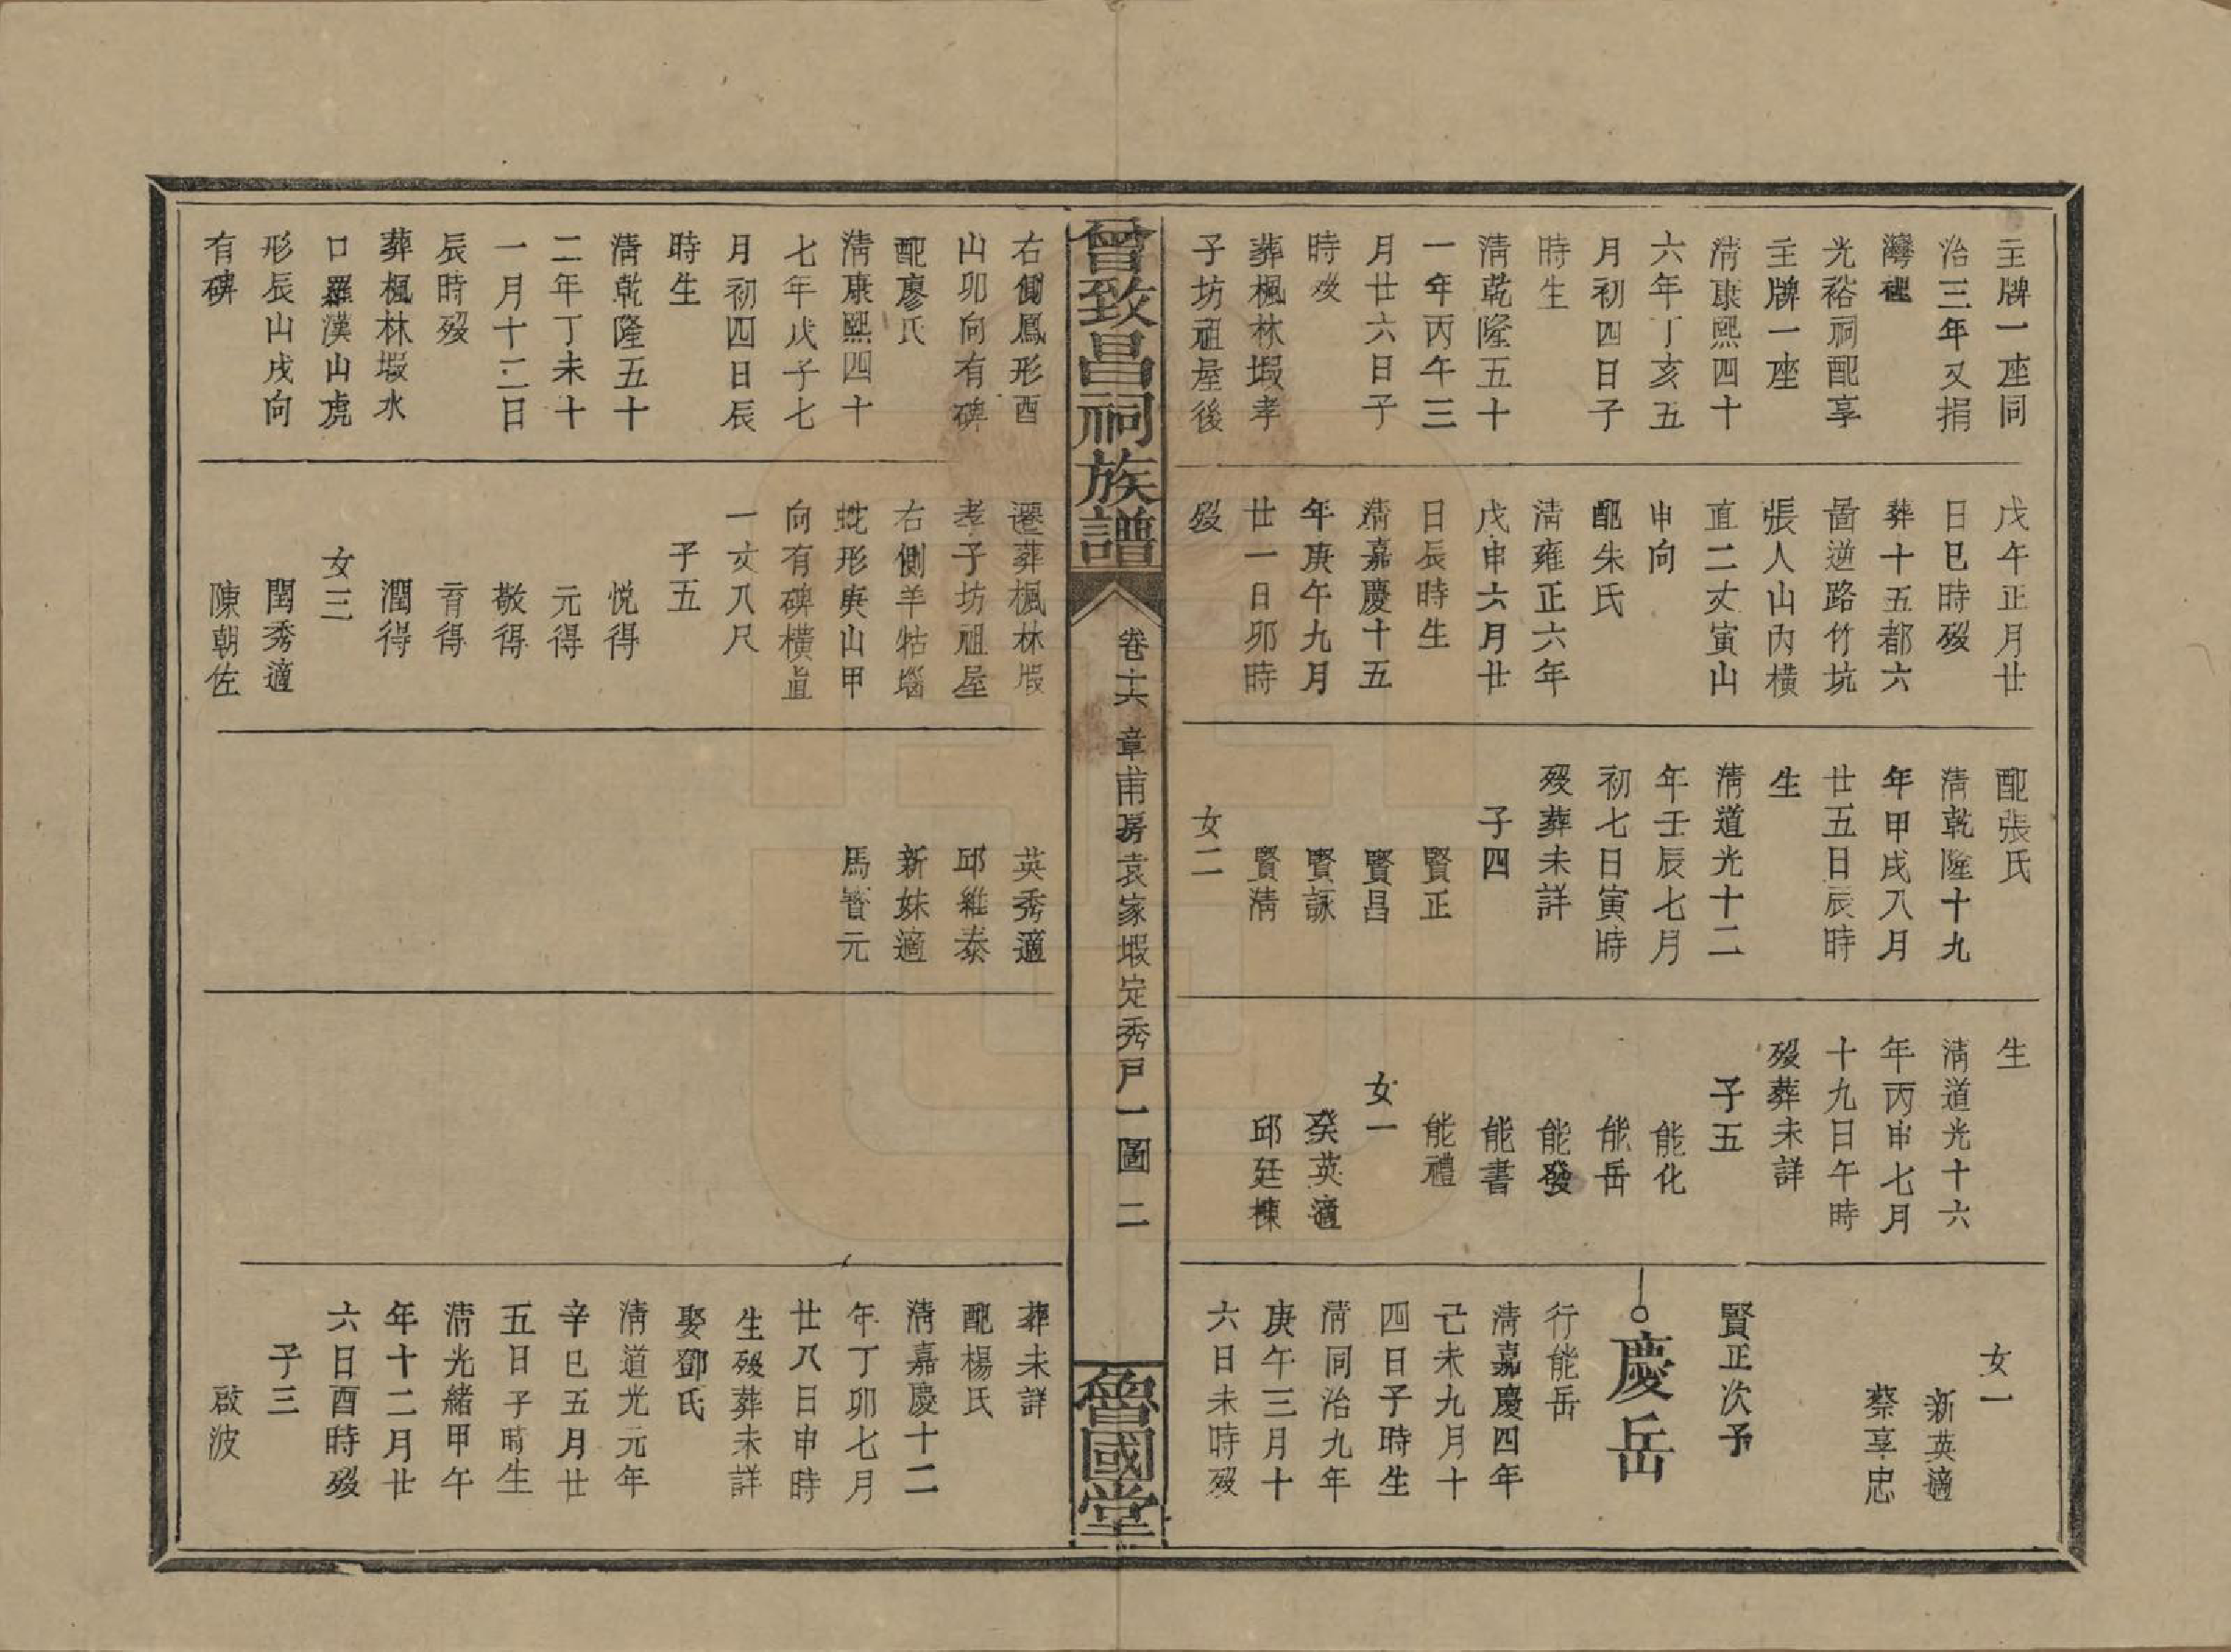 主牌一座同
治三年又捐
灣裡
光裕祠配享
主牌一座
清康熙四十
六年丁亥五
月初四日子
時生
清乾隆五十
一年丙午三
月廿六日子
時歿
葬楓林塅孝
子坊祖屋後
戊午正月廿
日巳時歿
葬十五都六
啚逆路竹坑
張人山內橫
直二丈寅山
申向
配朱氏
清雍正六年
戊申六月廿
日辰時生
清嘉慶十五
年庚午九月
廿一日卯時
歿
配張氏
清乾隆十九
年甲戌八月
廿五日辰時
生
清道光十二
年壬辰七月
初七日寅時
歿葬未詳
子四
賢正
賢昌
賢詠
賢清
女二
生
清道光十六
年丙申七月
十九日午時
歿葬未詳
子五
能化
能岳
能發
能書
能禮
女一
癸英適
邱廷棟
女一
新英適
蔡享忠
賢正次子
慶岳
行能岳
清嘉慶四年
己未九月十
四日子時生
清同治九年
庚午三月十
六日未時歿
曾致昌祠族譜
卷十六 章甫房袁家塅定秀戶一圖 二
魯國堂
右側鳳形酉
山卯向有碑
配廖氏
清康熙四十
七年戊子七
月初四日辰
時生
清乾隆五十
二年丁未十
一月十二日
辰時歿
葬楓林塅水
口羅漢山虎
形辰山戌向
有碑
遷葬楓林塅
孝子坊祖屋
右側羊牯堖
蛇形庚山甲
向有碑橫直
一丈八尺
子五
悅得
元得
敬得
育得
潤得
女三
閏秀適
陳朝佐
英秀適
邱維泰
新妹適
馬贊元
葬未詳
配楊氏
清嘉慶十二
年丁卯七月
廿八日申時
生歿葬未詳
娶鄧氏
清道光元年
辛巳五月廿
五日子時生
清光緒甲午
年十二月廿
六日酉時歿
子三
啟波